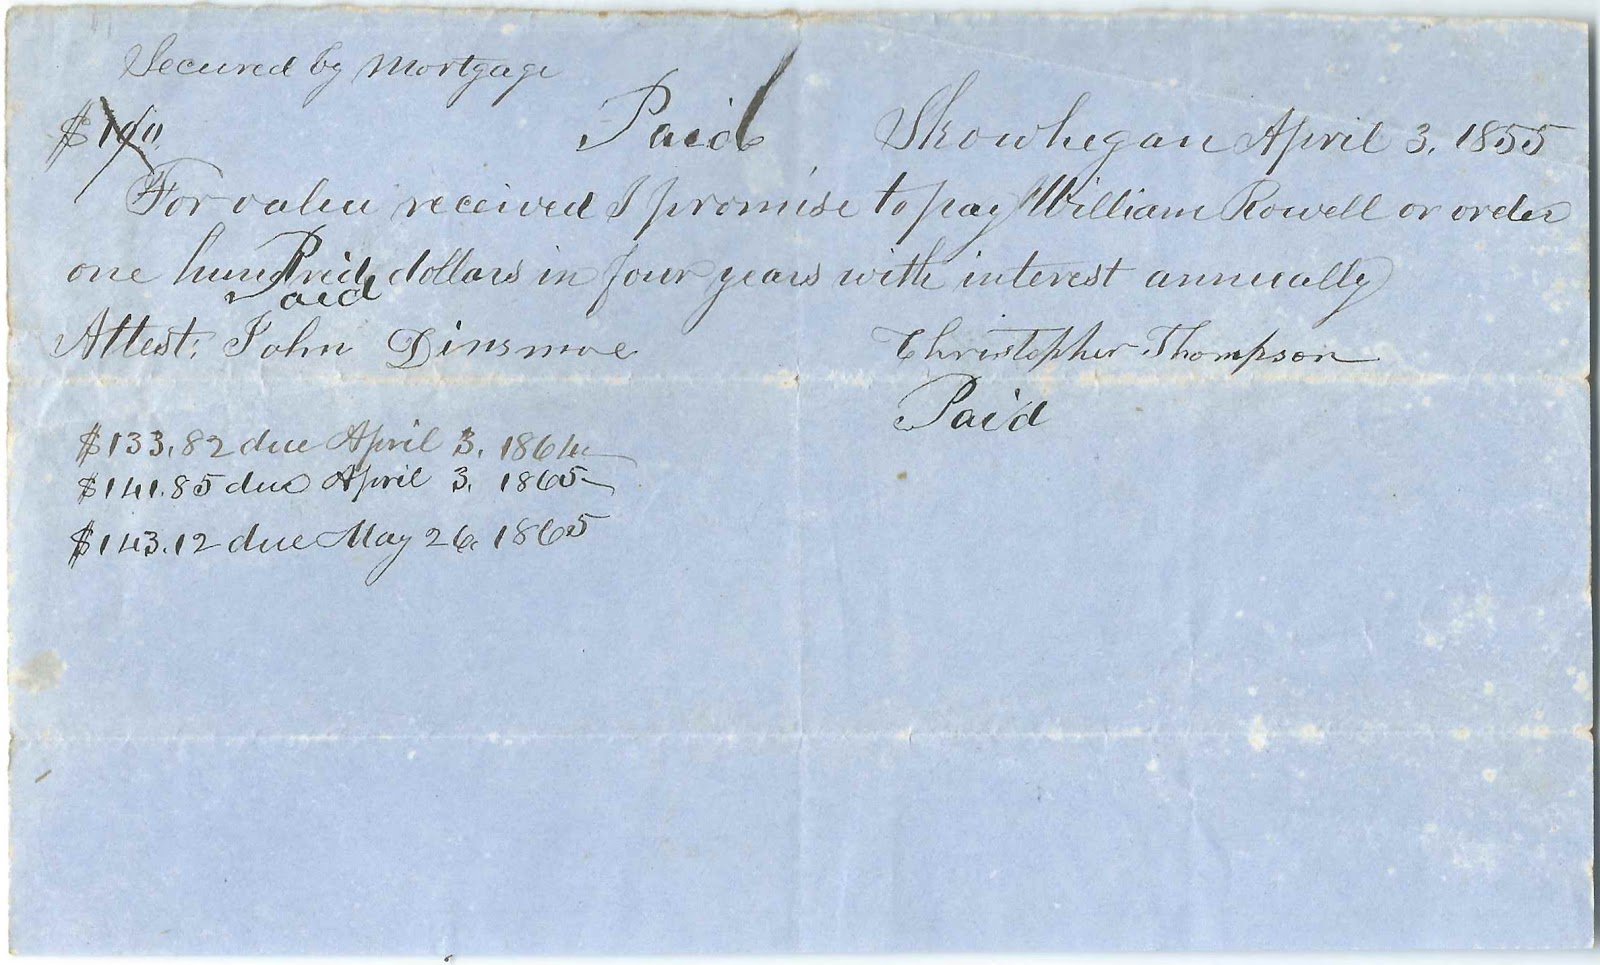 Secured by Mortgage
$100 Paid Skowhegan April 3. 1855
For value received I promise to pay William Rowell or order
one hundred dollars in four years with interest annually
Paid
Attest; John Dinsmore Christopher Thompson
Paid
$133.82 due April 3. 1864
$141.85 due April 3. 1865
$143.12 due May 26. 1865